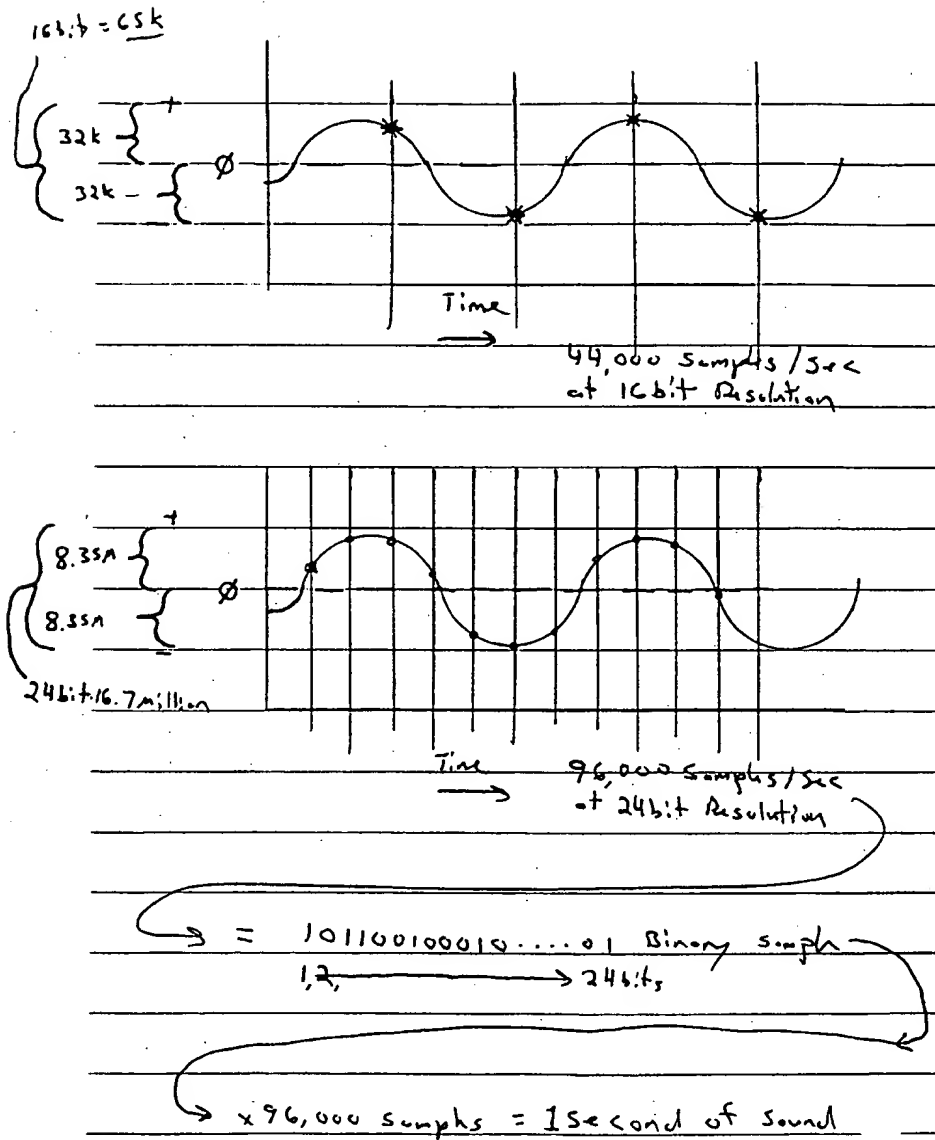 16bit = 65k
+
32k
Ø
32k -
Time
44,000 Samples/Sec
at 16bit Resolution
+
8.35M
Ø
8.35M
-
24bit 16.7 Million
Time
96,000 Samples/Sec
at 24bit Resolution
= 101100100010.....01 Binary sample
1,2, 24bits
x96,000 samples = 1 Second of Sound